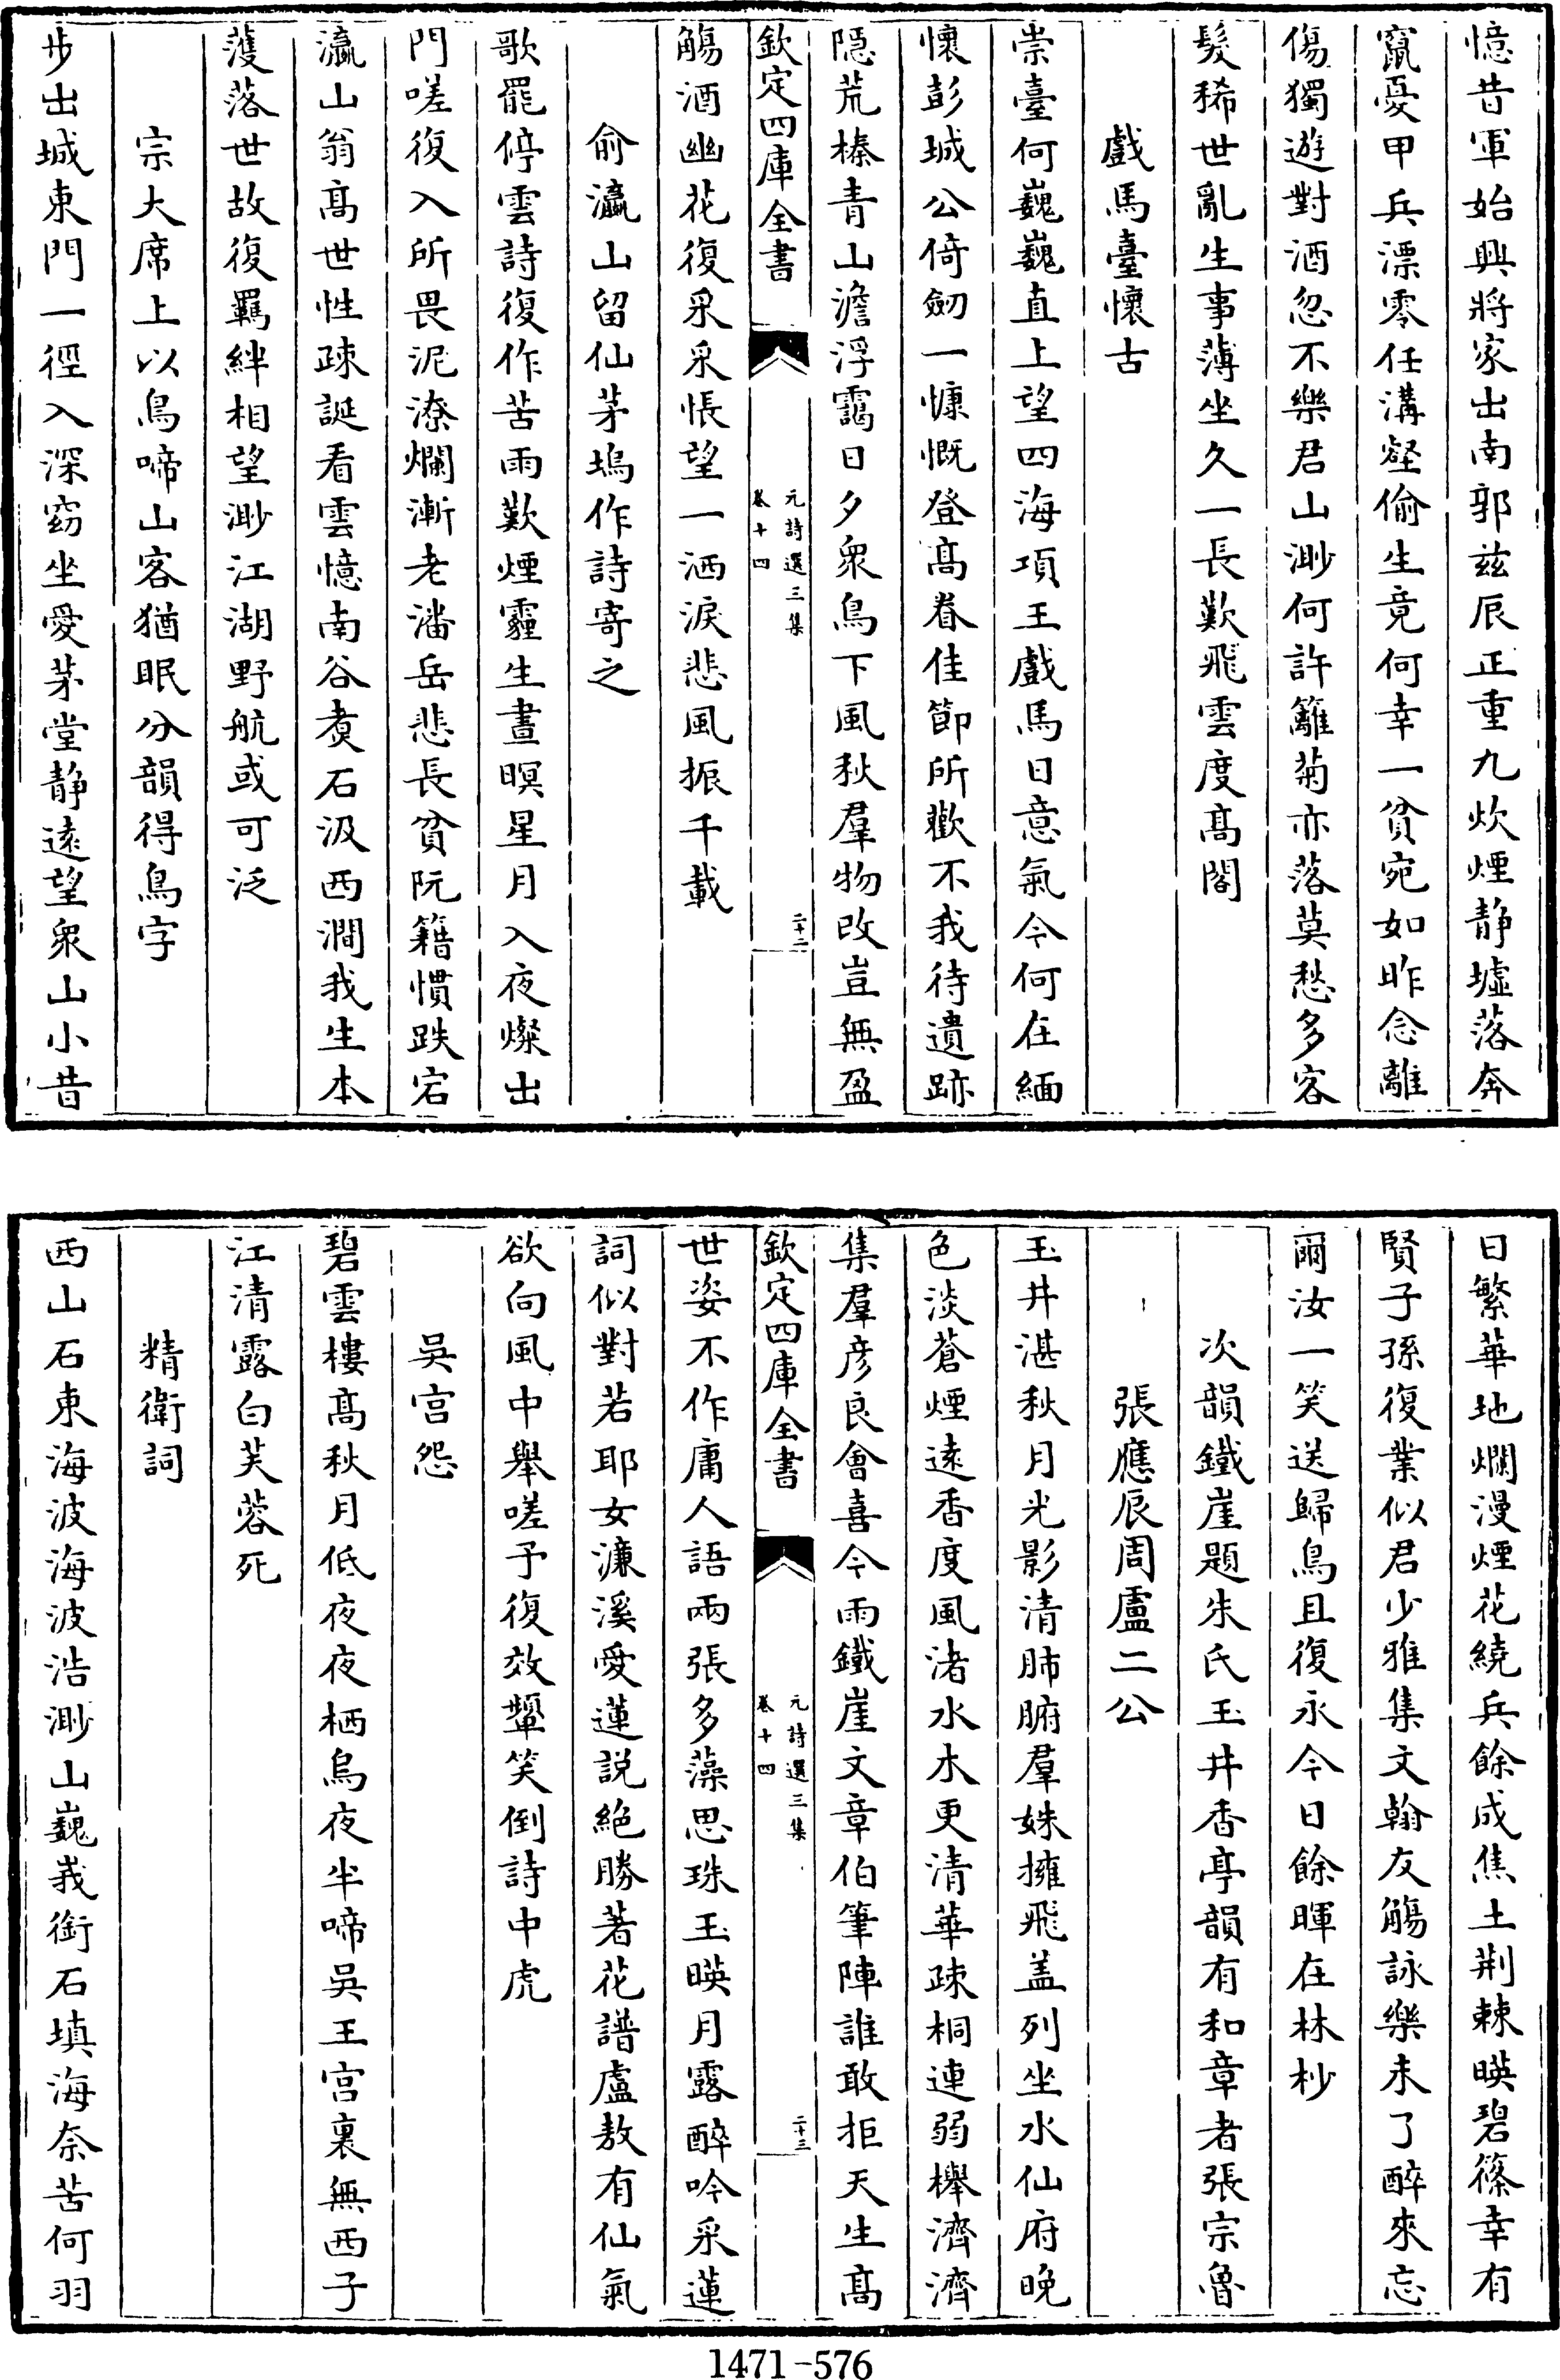 憶昔軍始興將家出南郭兹辰正重九炊煙静墟落奔
竄憂甲兵漂零任溝壑偷生竟何幸一貧宛如昨念離
傷獨遊對酒忽不樂君山渺何許籬菊亦落莫愁多客
髮稀世亂生事薄坐久一長歎飛雲度髙閣
戲馬臺懷古
崇臺何巍巍直上望四海項王戲馬日意氣今何在緬
懷彭城公倚劒一慷慨登髙眷佳節所歡不我待遺跡
隠荒榛青山澹浮靄日夕衆鳥下風秋羣物改豈無盈
欽定四庫全書
元詩選三集
卷十四
二十二
觴酒幽花復采采悵望一洒淚悲風振千載
俞瀛山留仙茅塢作詩寄之
歌罷停雲詩復作苦雨歎煙霾生晝暝星月入夜燦出
門嗟復入所畏泥潦爛漸老潘岳悲長貧阮籍慣跌宕
瀛山翁髙世性疎誕看雲憶南谷煑石汲西澗我生本
濩落世故復羈絆相望渺江湖野航或可泛
宗大席上以鳥啼山客猶眠分韻得鳥字
步出城東門一徑入深窈坐愛茅堂静遠望衆山小昔
日繁華地爛漫煙花繞兵餘成焦土荆棘暎碧篠幸有
賢子孫復業似君少雅集文翰友觴詠樂未了醉來忘
爾汝一笑送歸鳥且復永今日餘暉在林杪
次韻鐵崖題朱氏玉井香亭韻有和章者張宗魯
張應辰周盧二公
玉井湛秋月光影清肺腑羣姝擁飛盖列坐水仙府晚
色淡蒼煙遠香度風渚水木更清華疎桐連弱櫸濟濟
集羣彦良會喜今雨鐵崖文章伯筆陣誰敢拒天生髙
欽定四庫全書
元詩選三集
卷十四
二十三
世姿不作庸人語兩張多藻思珠玉暎月露醉吟采蓮
詞似對若耶女濂溪愛蓮説絶勝著花譜盧敖有仙氣
欲向風中舉嗟予復效顰笑倒詩中虎
吳宫怨
碧雲樓髙秋月低夜夜栖烏夜半啼吳王宫裏無西子
江清露白芙蓉死
精衛詞
西山石東海波海波浩渺山巍峩銜石填海奈苦何羽
1471-576